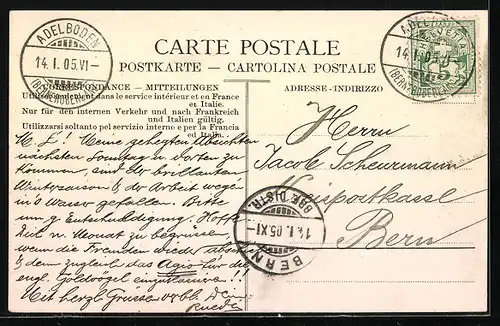 ADELBODEN
14. I. 05. VI–
(BERN. OBERLAND)
CARTE POSTALE
POSTKARTE — CARTOLINA POSTALE
CORRESPONDANCE — MITTEILUNGEN
Utilisable seulement dans le service intérieur et en France
et Italie.
Nur für den internen Verkehr und nach Frankreich
und Italien gültig.
Utilizzarsi soltanto pel servizio interno e per la Francia
ed Italia.
M. L! Meine gehegten Absichten
nächsten Sonntag n. dorten zu
kommen, sind der brillanten
Wintersaison & der Arbeit wegen
in's Wasser gefallen. Bitte
um g. Entschuldigung. Hoffe
Dich n. Monat zu begrüssen
wenn die Fremden wieder
& dem zugleich das Agio für die
engl. Goldvögel
Mit herzl. Gruss Dein
ADRESSE-INDIRIZZO
ADELBODEN
14. I. 05.
(BERN. OBERLAND)
HELVETIA
5
Herrn
Jacob Scheurmann
postkassl.
Bern
BRF. DISTR.
14. I. 05. XI–
BERN